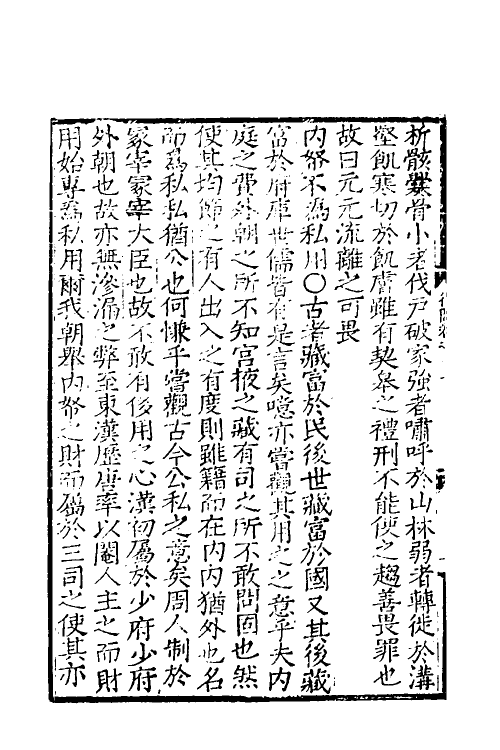 析骸爨骨小者伐戶破家強者嘯呼於山林弱者轉徙於溝
壑飢寒切於飢膚雖有契皋之禮刑不能使之趨善畏罪也
故曰元元流離之可畏
內帑不為私用〇古者藏富於民後世藏富於國又其後藏
富於府庫世儒皆有是言矣噫亦嘗觀其用之之意乎夫內
庭之費外朝之所不知宮掖之藏有司之所不敢問固也然
使其均節之有人出入之有度則雖籍而在內內猶外也名
而為私私猶公也何慊乎嘗觀古今公私之意矣周人制於
冡宰冡宰大臣也故不敢有侈用之心漢初屬於少府少府
外朝也故亦無滲漏之弊至東漢歷唐率以閹人主之而財
用始專為私用爾我朝舉內帑之財而屬於三司之使其亦